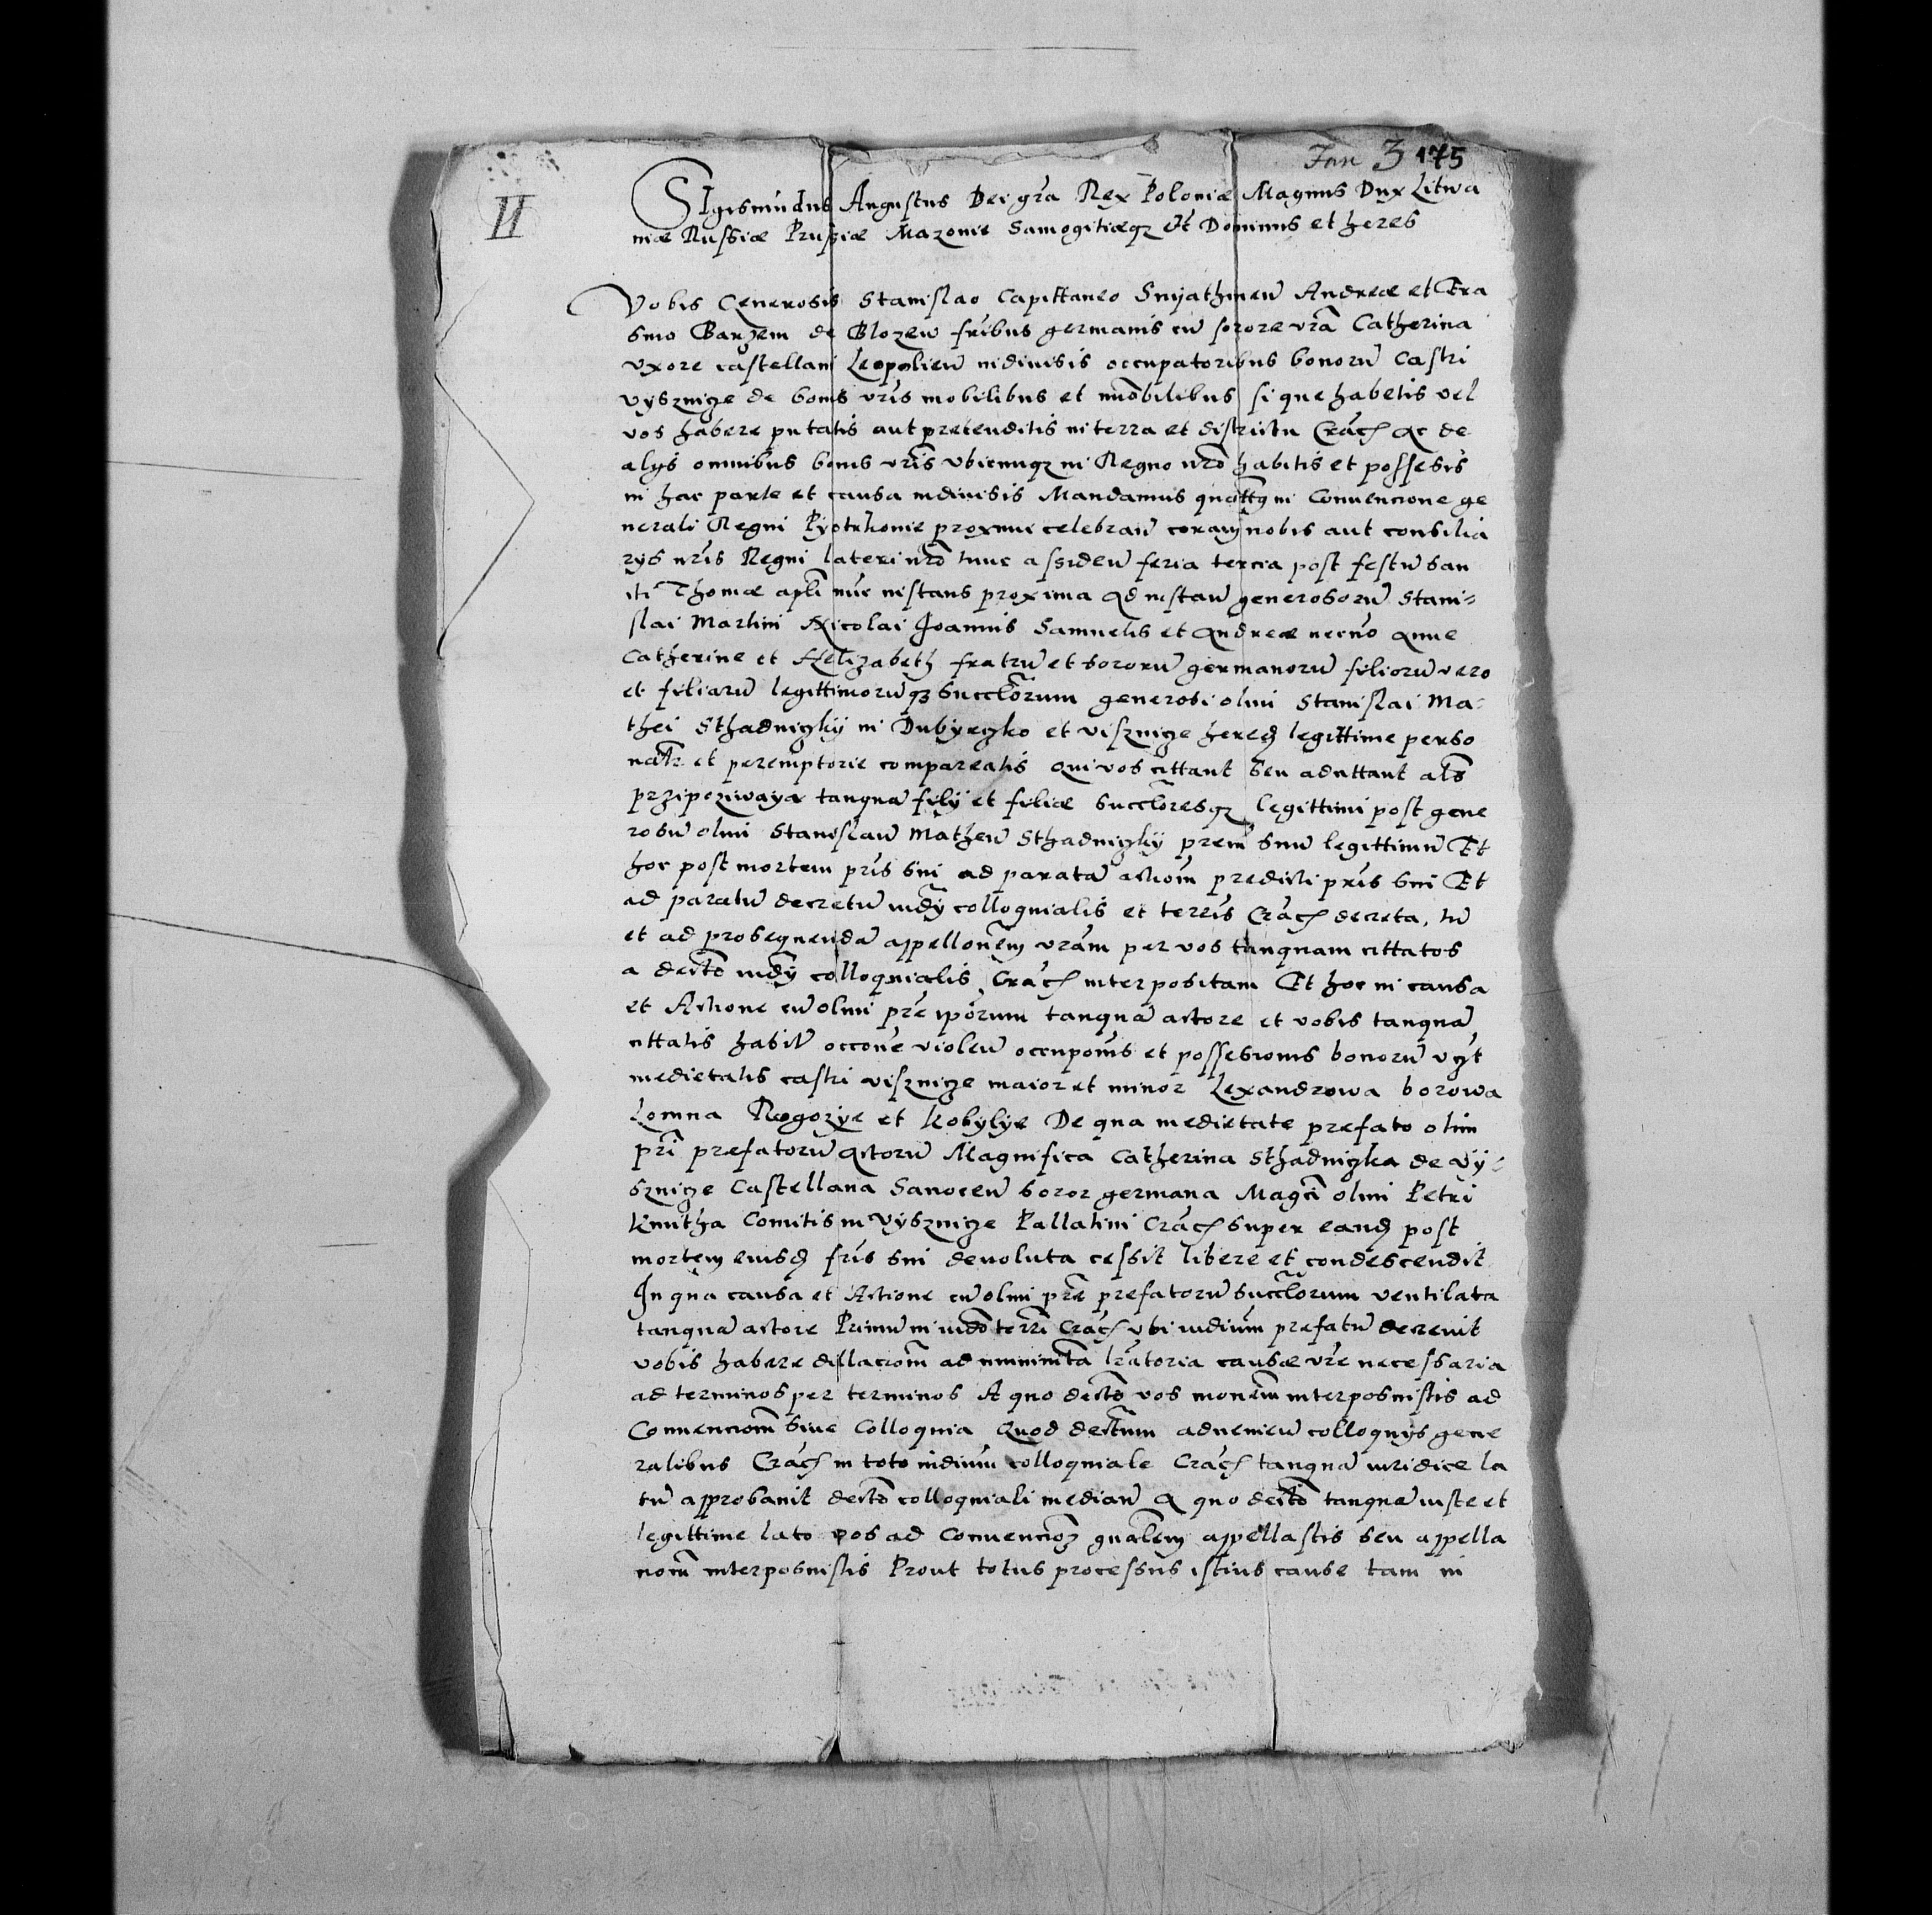 Jan 3 175
II
SIgismũdus Augustus Dei grã Rex Poloniæ Magnus Dux Litwa
niæ Russiæ Prussiæ Mazoniæ Samogitiæqȝ etc Dominus et heres
Vobis Generosis Stanislao Capittaneo Snyathineñ Andreæ et Era
smo Barzem de Blozew fribus germanis cũ sorore vrã Catherina
vxore castellani Leopolieñ indiuisis occupatoribus bonorũ Castri
vysznicze de bonis vris mobilibus et inmobilibus si que habetis vel
vos habere putatis aut pretenditis in terra et districtu Crac̃ Ac de
alijs omnibus bonis vris vbicunqȝ in Regno nrõ habitis et possesis
in hac parte et causa indiuisis Mandamus quattȩ in Conuencione ge
nerali Regni Pyotrkoniæ proxime celebrañ coram nobis aut consilia
rijs nris Regni lateri nrõ tunc assideñ feria tercia post festũ san
cti Thomæ apli nũc instans proxima Ad instañ generosorũ Stani=
slai Martini Nicolai Joannis Samuelis et Andreæ necnõ Anne
Catherine et Helizabeth fratrũ et sororũ germanorũ filiorũ vero
et filiarũ legittimorũqȝ succtõrum generosi olim Stanislai Ma=
thei Sthadniczkij in Dubyeczko et visznicze hered legittime perso
natr et peremptorie compareatis Qui vos cittant seu adcittant als
przipoziwaya tanquã filij et filiæ succtõresqȝ legittimi post gene
rosũ olim Stanislaũ Matheũ Sthadniczkij prem suũ legittimũ Et
hoc post mortem pris sui ad paratã actiom predicti pris sui Et
ad paratũ decretũ iudij colloquialis et terris Crac̃ decreta, tũ
et ad prosequendã appellonem vram per vos tanquam cittatos
a decto iudij colloquialis Crac̃ interpositam Et hoc in causa
et Actione cũ olim pre ipõrum tanquã actore et vobis tanquã
cittatis habitr occone violeñ occupõnis et possesionis bonorũ vczt
medietatis castri visznicze maior et minor Lexandrowa borowa
Lomna Rogozye et Kobylye De qua medietate prefato olim
pri prefatorũ Actorũ Magnifica Catherina Sthadniczka de Vÿ=
sznicze Castellana Sanoceñ soror germana Magci olim Petri
Kmitha Comitis in Vysznicze Pallatini Crac̃ super eand post
mortem eiusd fris sui deuoluta cessit libere et condescendit
In qua causa et Actione cũ olim pre prefatorũ succtõrum ventilata
tanquã actore Primũ in iudo terri Crac̃ vbi iudium prefatũ decreuit
vobis habere dillaciom ad munimta lratoria causæ vre necessaria
ad terminos per terminos A quo decto vos monem interposuistis ad
Conuenciom siue Colloquia Quod dectum adueniẽ colloquijs gene
ralibus Crac̃ in toto iudium colloquiale Crac̃ tanquã iuridice la
tũ approbauit decto colloquiali mediañ A quo decto tanquã iuste et
legittime lato vos ad Conuencioȝ gnalem appellastis seu appella
ciom interposuistis Prout totus processus istius cause tam in